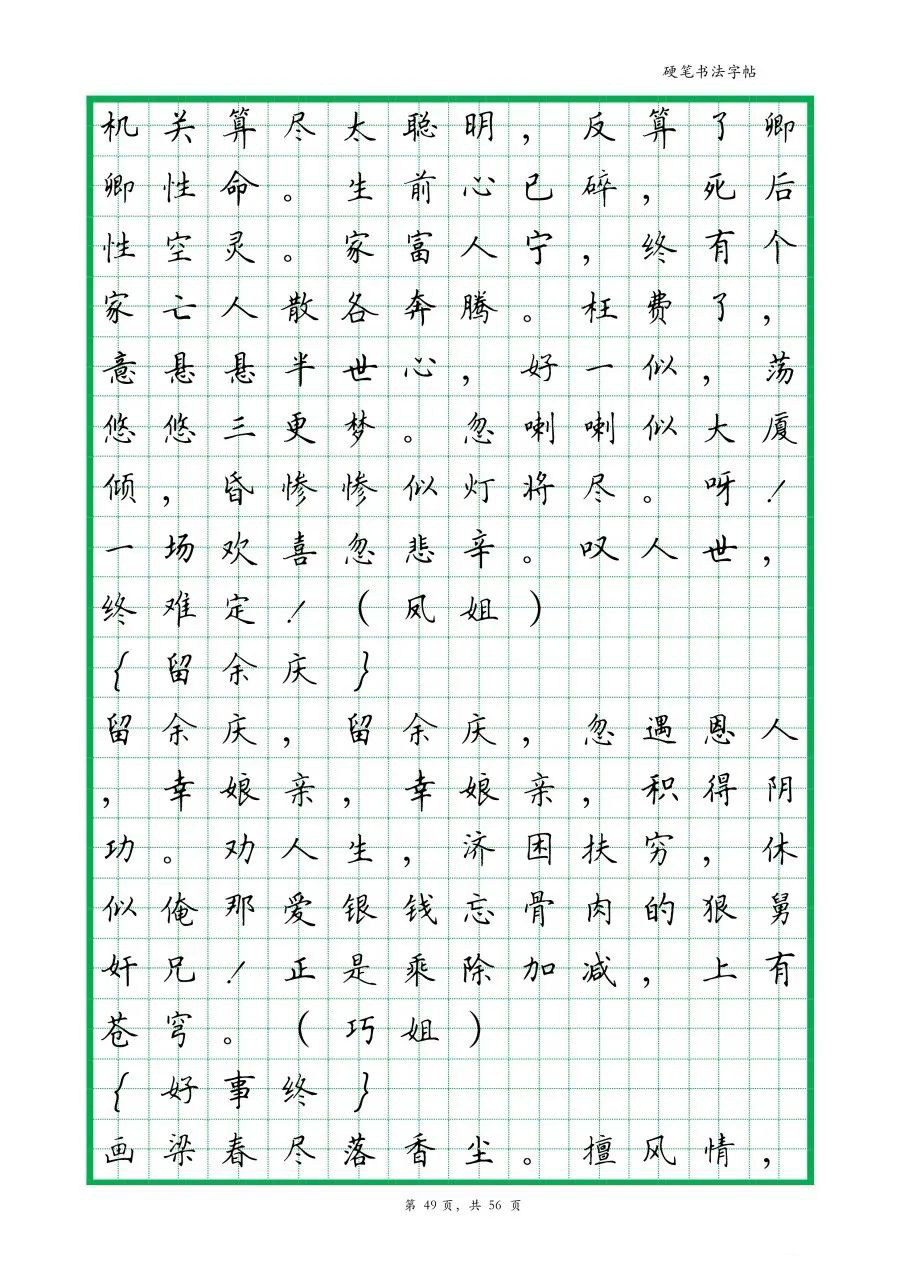 硬笔书法字帖
机关算尽太聪明，反算了卿
卿性命。生前心已碎，死后
性空灵。家富人宁，终有个
家亡人散各奔腾。枉费了，
意悬悬半世心，好一似，荡
悠悠三更梦。忽喇喇似大厦
倾，昏惨惨似灯将尽。呀！
一场欢喜忽悲辛。叹人世，
终难定！（凤姐）
{留余庆}
留余庆，留余庆，忽遇恩人
，幸娘亲，幸娘亲，积得阴
功。劝人生，济困扶穷，休
似俺那爱银钱忘骨肉的狠舅
奸兄！正是乘除加减，上有
苍穹。（巧姐）
{好事终}
画梁春尽落香尘。擅风情，
第 49 页，共 56 页